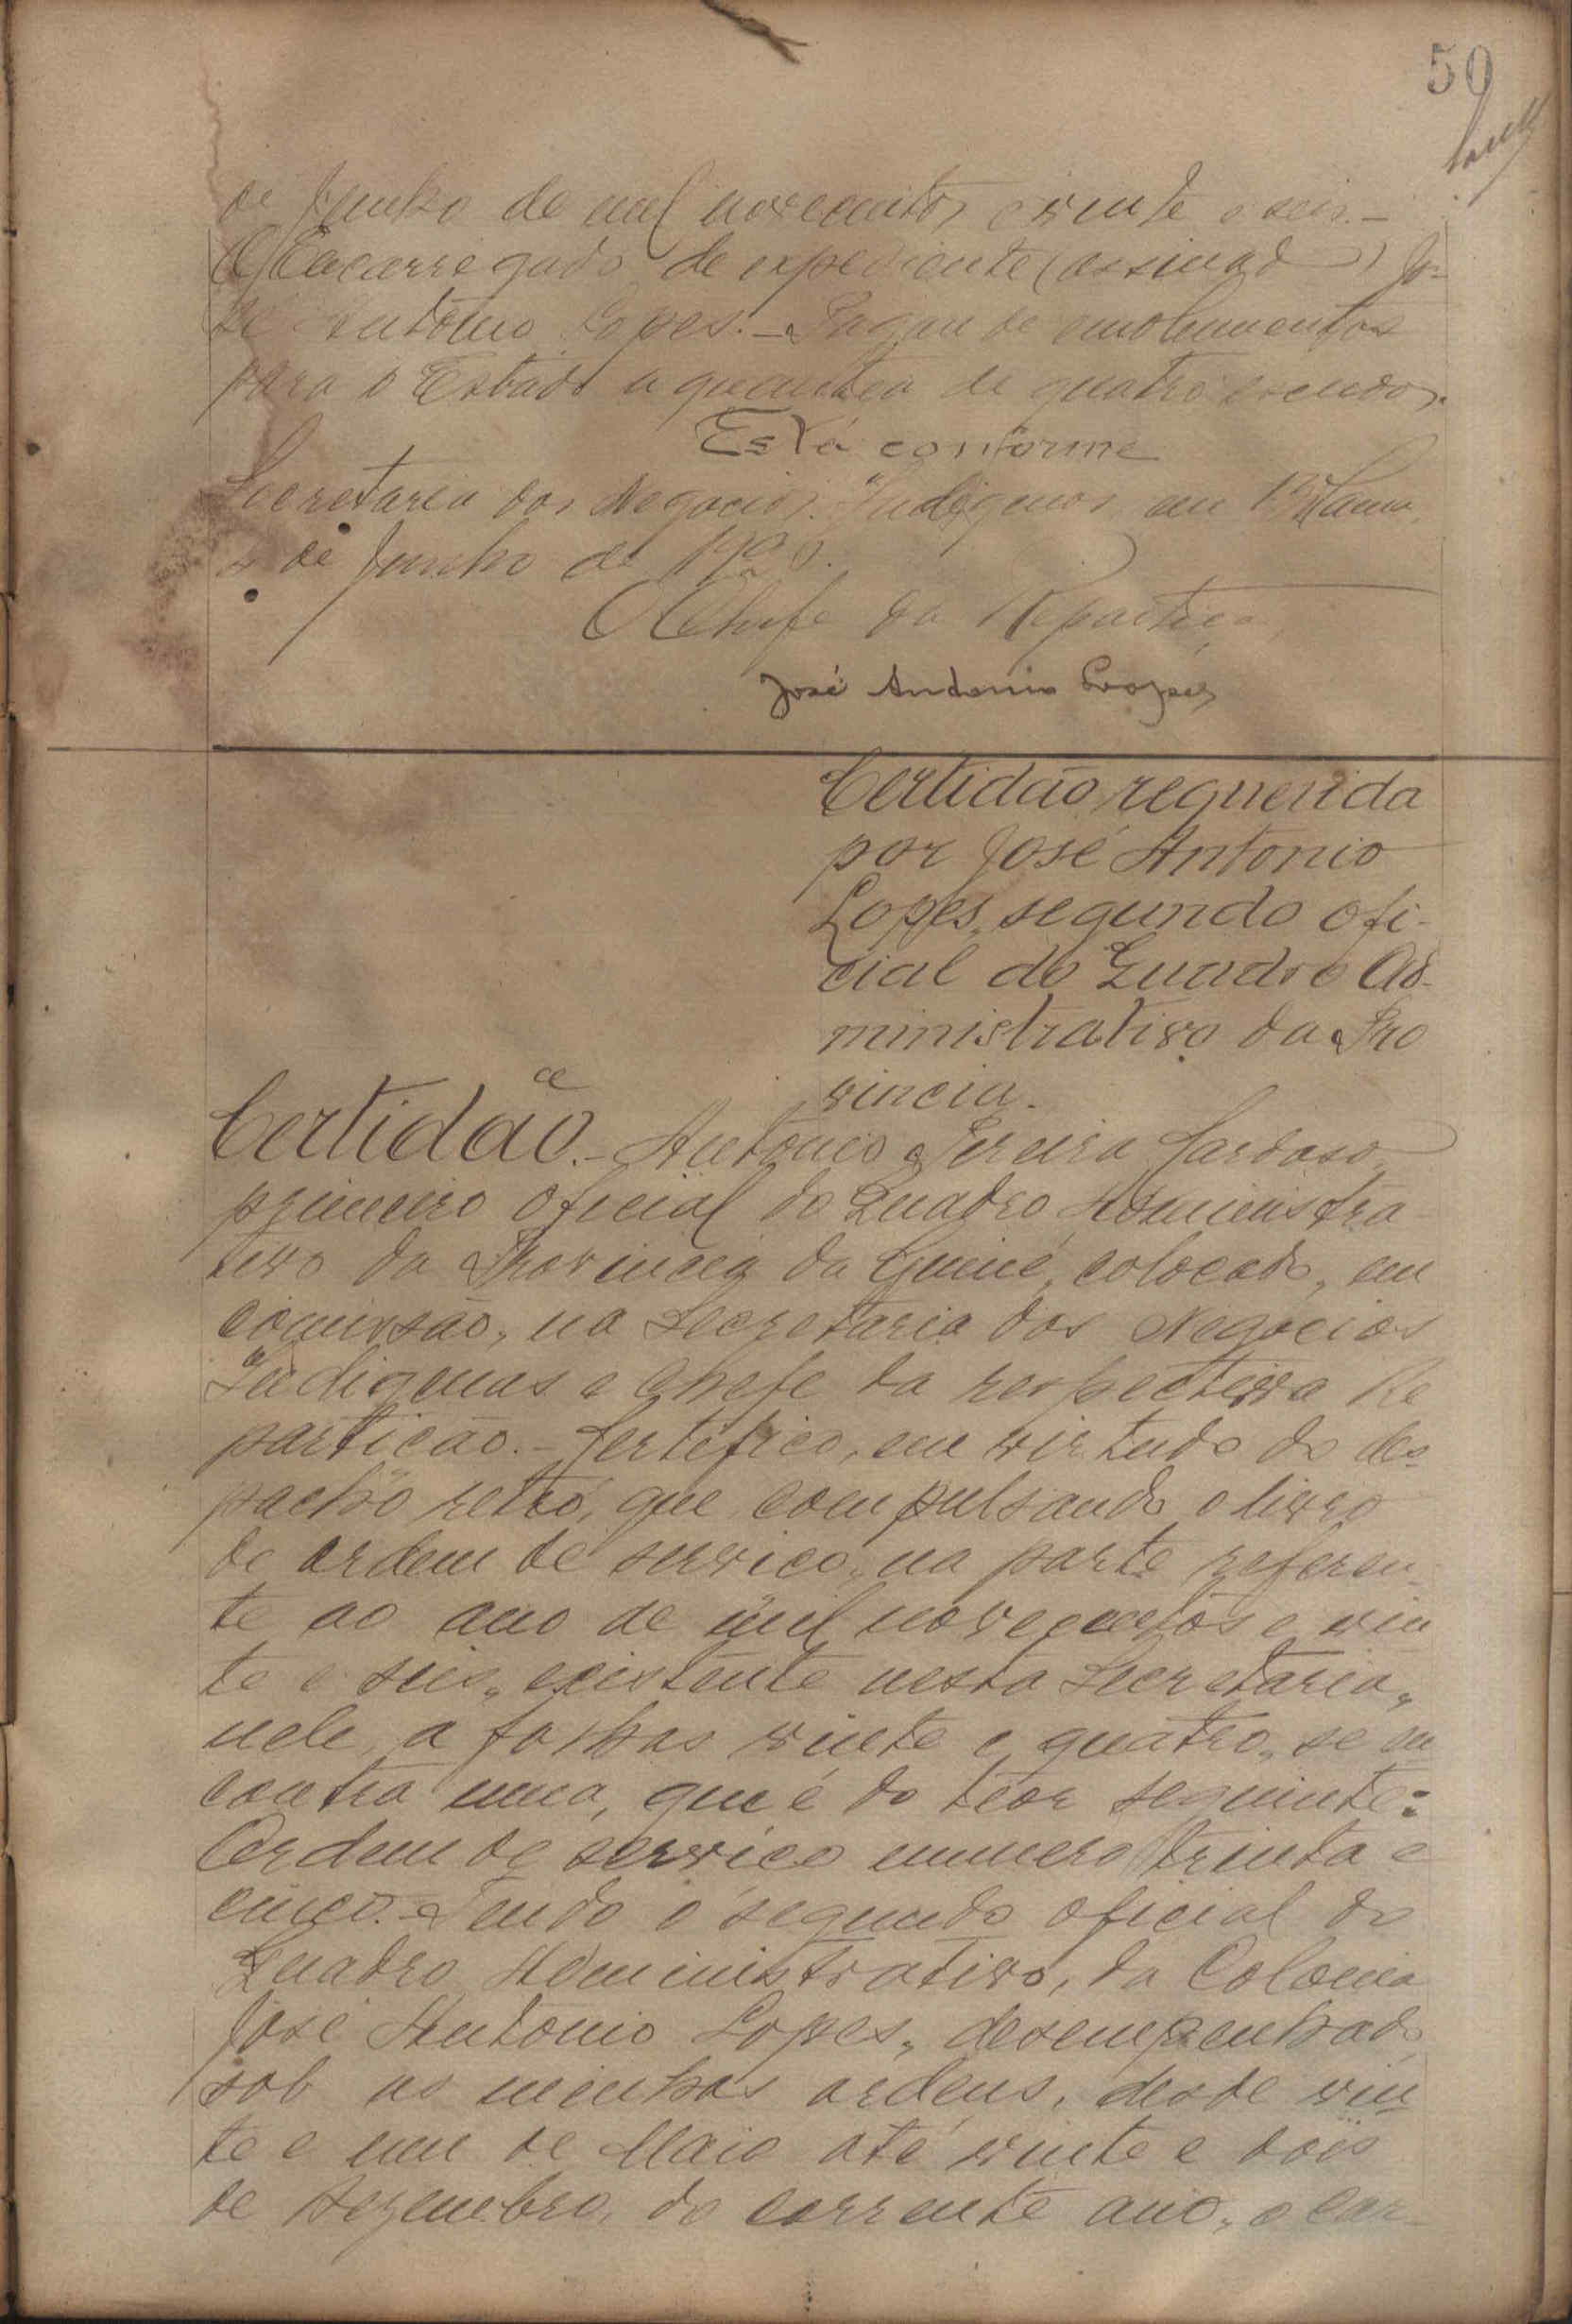 50
de Junho de mil novecentos e vinte e seis.-
O Encarregado de expediente (assinado) Jo-
sé Antonio Lopes.- Pagou de emolumentos
para o Estado a quantia de quatro escudos.
Está conforme
Secretaria dos Negocios Indigenas em Bolama,
de Junho de
O Chefe da Repartição,
José Antonio Lopes
Certidão requerida
por José Antonio
Lopes, segundo ofi-
cial do Quadro Ad-
ministrativo da Pro
vincia.
Certidão.- Antonio Pereira Cardoso,
primeiro oficial do Quadro Administra-
tivo da Provincia da Guiné, colocado, em
comissão, na Secretaria dos Negocios
Indigenas e Chefe da respectiva Re
partição.- Certifico, em virtude do des
pacho retro, que compulsando o livro
de ordem de serviço, na parte referen-
te ao ano de mil novecentos e vin
te e seis, existente nesta Secretaria,
nele, a folhas vinte e quatro, se en
contra uma, que é do teor seguinte:
Ordem de serviço numero trinta e
cinco.- Tendo o segundo oficial do
Quadro Administrativo, da Colonia
José Antonio Lopes, desempenhado
sob as minhas ordens, desde vin-
te e um de Maio até vinte e dois
de Dezembro, do corrente ano, o car-